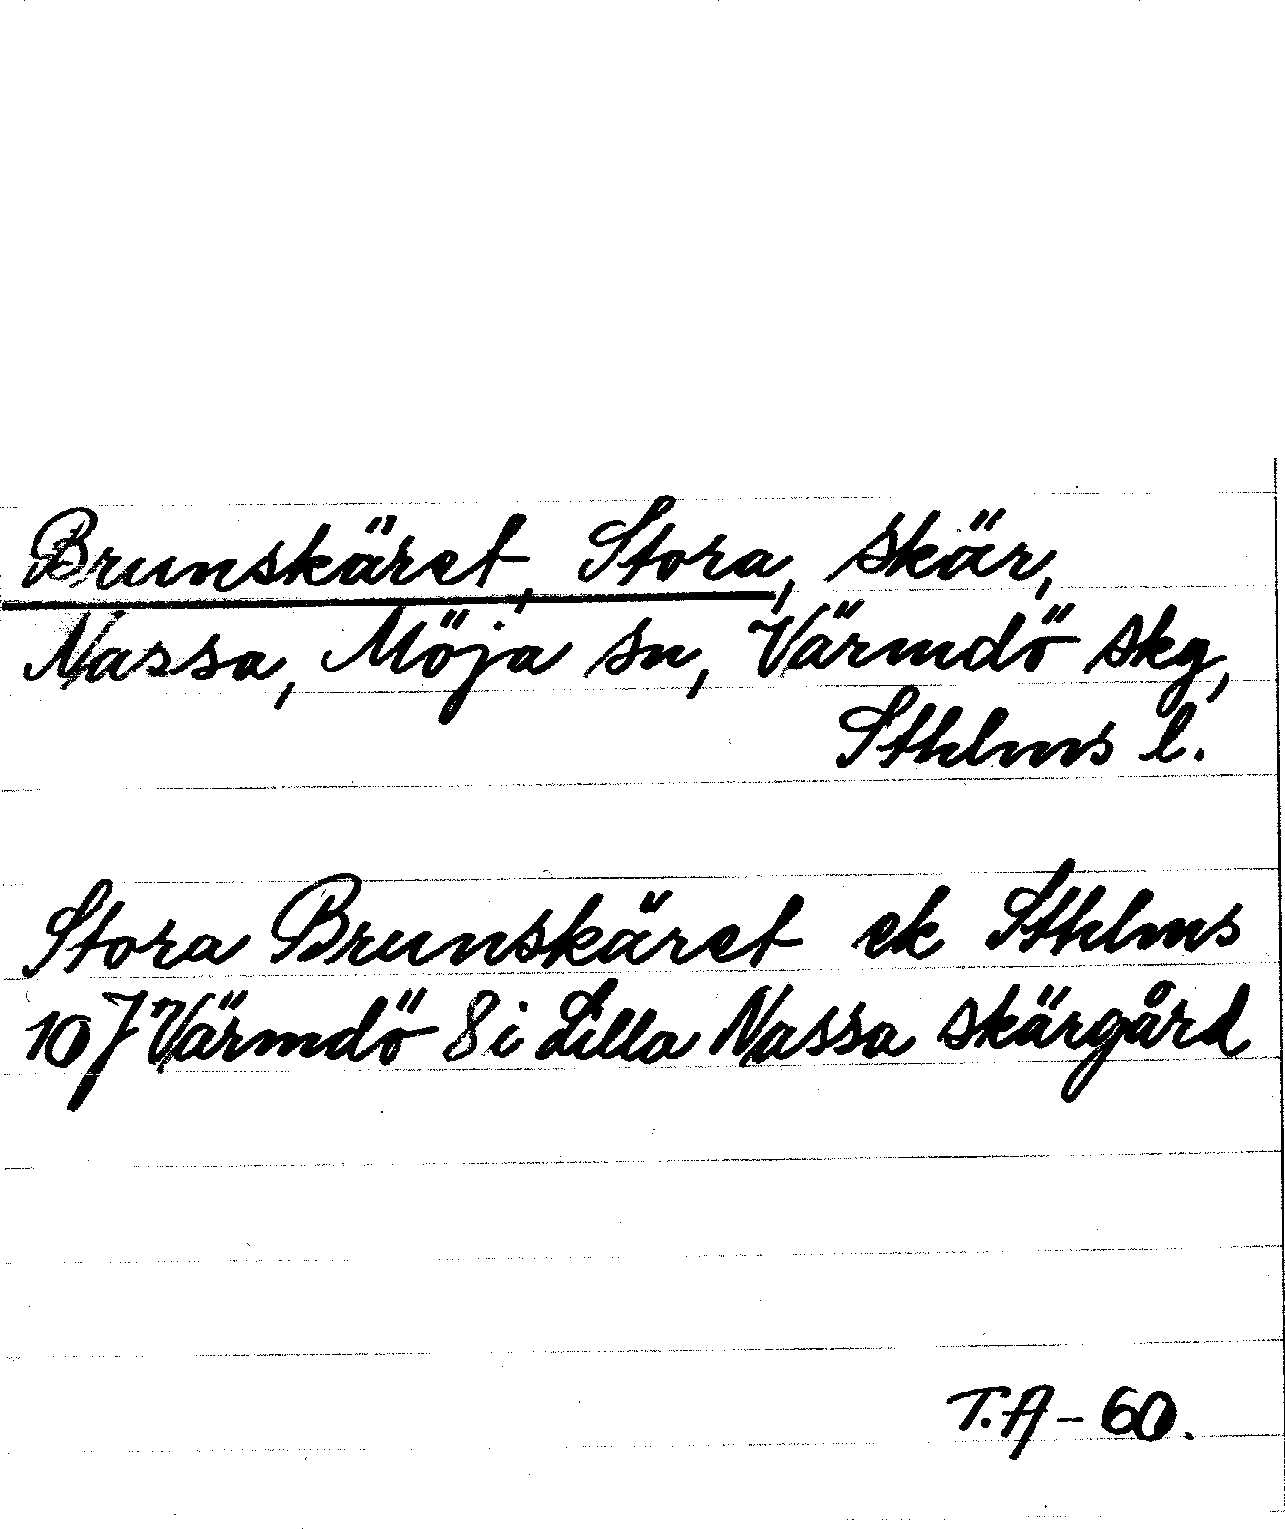 Brunskäret, Stora, skär,
Nassa, Möja sn, Värmdö skg,
Sthlms l.
Stora Brunskäret ek Sthlms
107 Värmdö 8 i Lilla Nassa skärgård
T.A - 60.